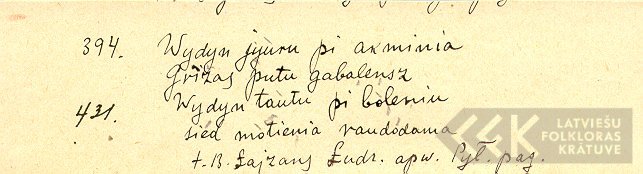 394. Wydyn jyuru pi akminia
Grižas putu gabalensz
431. Wydyn tautu pi boleniu
sied motienia raudodama
t. B. Łajzans Łudz. apw. Pył. pag.
LATVIEŠU
FOLKLORAS
KRĀTUVE